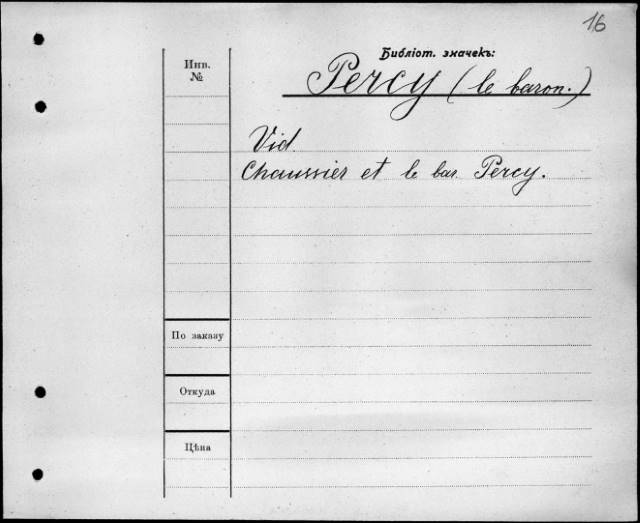 16
Библіот. значекъ:
Инв.
№
Percy (le baron.)
Vid.
Chaussier et le bar. Percy.
По заказу
Откуда
Цѣна